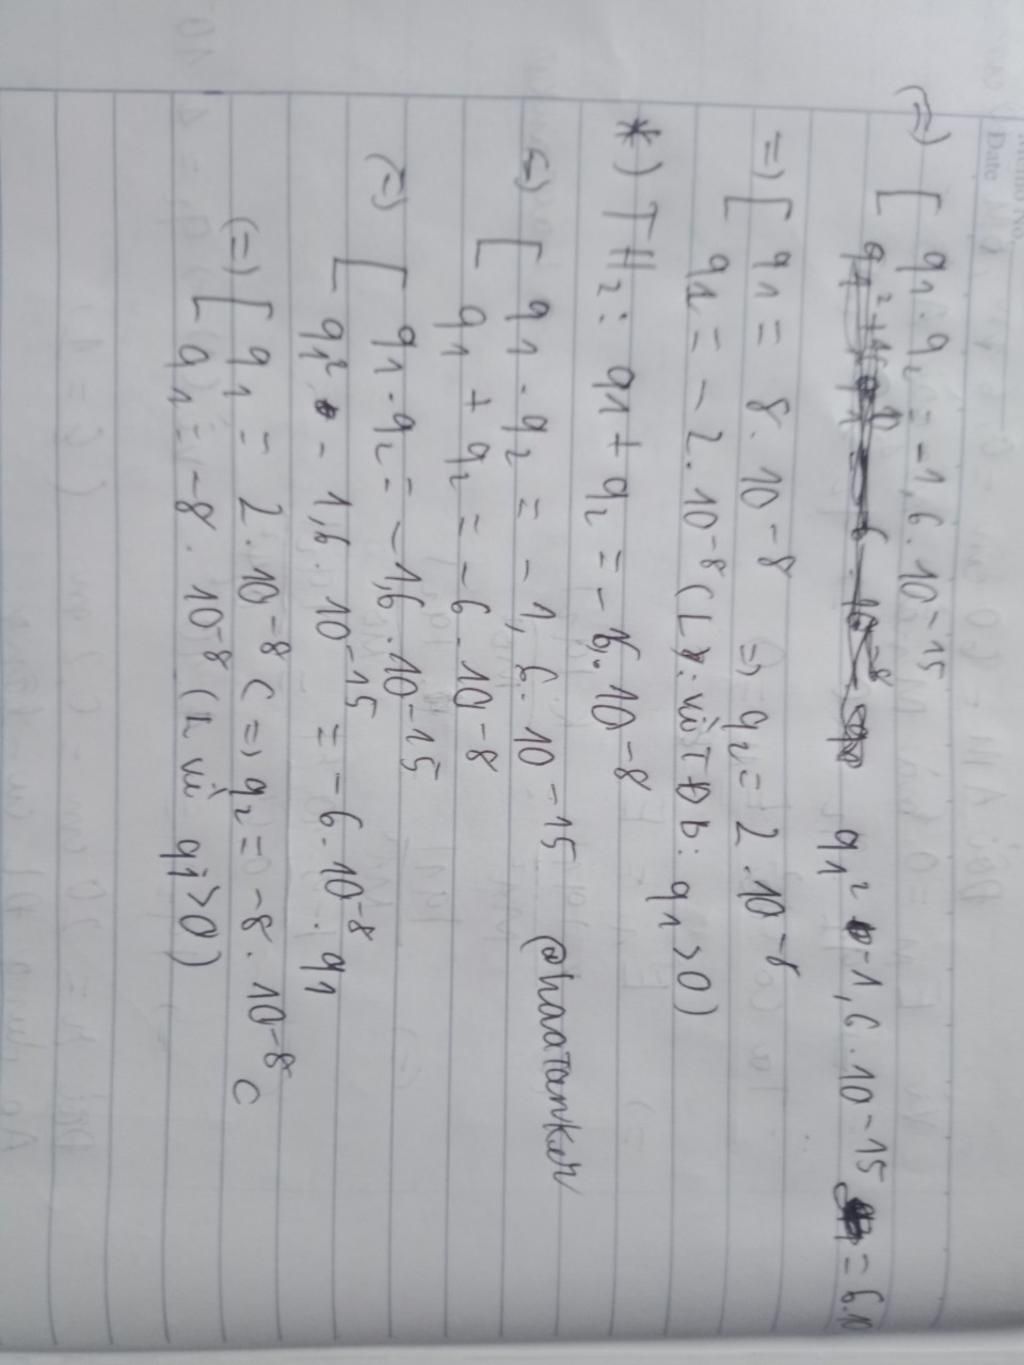 (=) [ q1.q2 = -1,6.10^-15
q1² -1,6.10^-15 = 6.10
=) [ q1 = 8.10^-8 => q2 = 2.10^-8
q1 = -2.10^-8 (L vì TĐb: q1 > 0)
*) TH2: q1 + q2 = -6.10^-8
(=) [ q1.q2 = -1,6.10^-15 @haatanker
q1 + q2 = -6.10^-8
(=) [ q1.q2 = -1,6.10^-15
q1² - 1,6.10^-15 = -6.10^-8.q1
(=) [ q1 = 2.10^-8 C => q2 = -8.10^-8 C
q1 = -8.10^-8 (L vì q1 > 0)